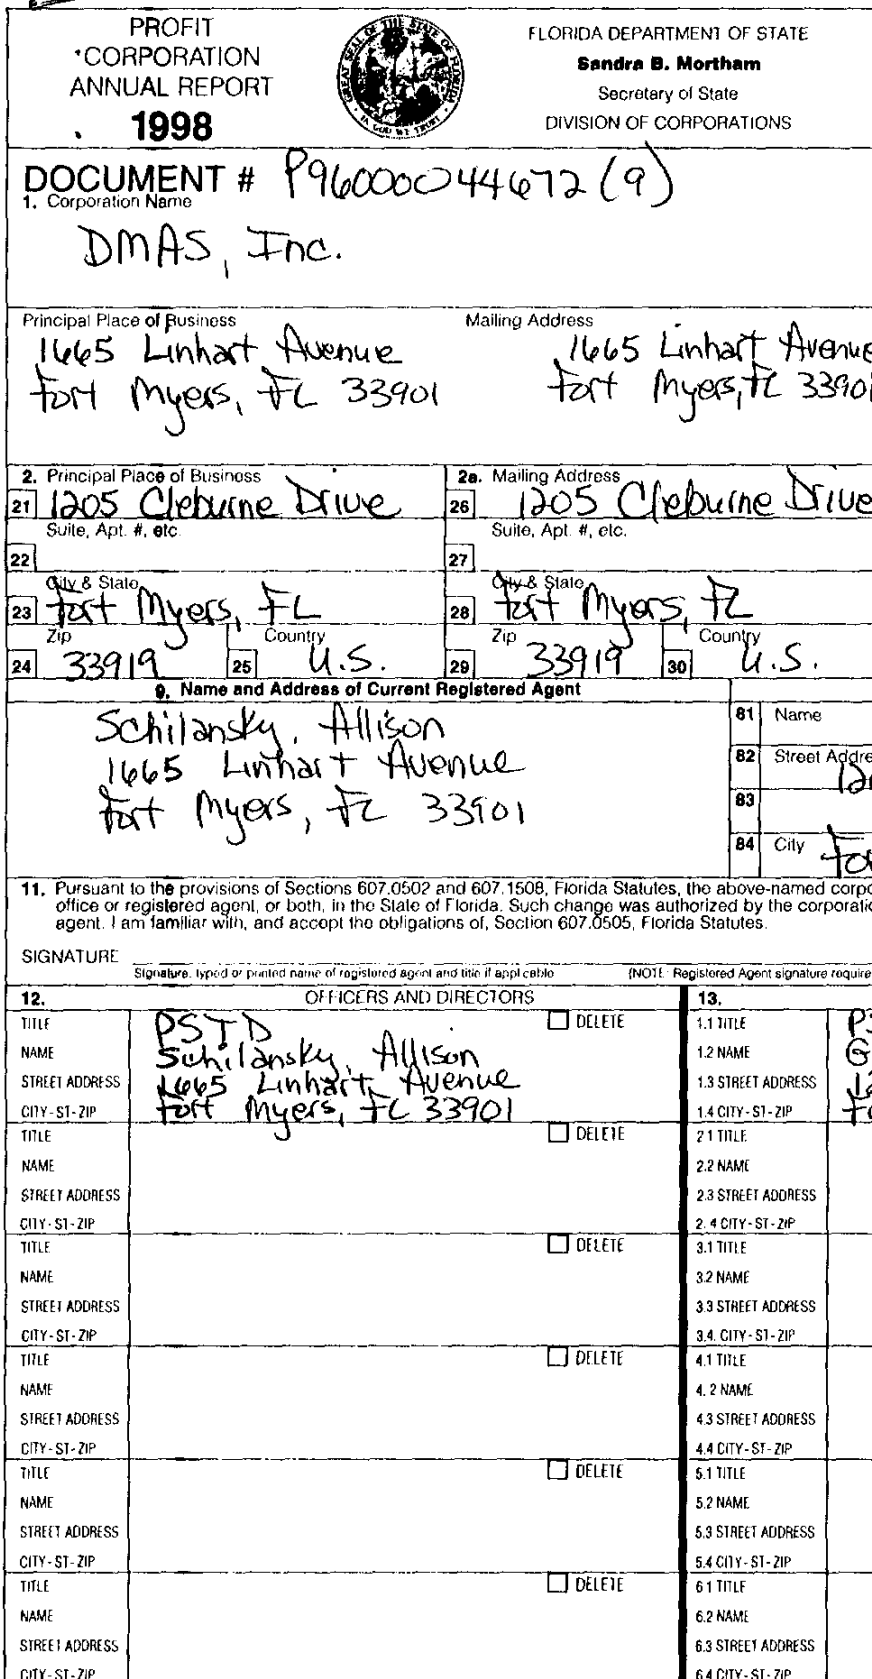 PROFIT
CORPORATION
ANNUAL REPORT
1998
GREAT SEAL OF THE STATE OF FLORIDA
IN GOD WE TRUST
FLORIDA DEPARTMENT OF STATE
Sandra B. Mortham
Secretary of State
DIVISION OF CORPORATIONS
DOCUMENT # P96000044672 (9)
1. Corporation Name
DMAS, Inc.
Principal Place of Business
1665 Linhart Avenue
Fort Myers, FL 33901
Mailing Address
1665 Linhart Avenue
Fort Myers, FL 33901
2. Principal Place of Business
21 1205 Cleburne Drive
Suite, Apt. #, etc.
22
City & State
23 Fort Myers, FL
Zip Country
24 33919 25 U.S.
2a. Mailing Address
26 1205 Cleburne Drive
Suite, Apt. #, etc.
27
City & State
28 Fort Myers, FL
Zip Country
29 33919 30 U.S.
9. Name and Address of Current Registered Agent
Schilansky, Allison
1665 Linhart Avenue
Fort Myers, FL 33901
81 Name
82 Street Addre
12
83
84 City Fo
11. Pursuant to the provisions of Sections 607.0502 and 607.1508, Florida Statutes, the above-named corpo
office or registered agent, or both, in the State of Florida. Such change was authorized by the corporati
agent. I am familiar with, and accept the obligations of, Section 607.0505, Florida Statutes.
SIGNATURE
Signature, typed or printed name of registered agent and title if applicable (NOTE: Registered Agent signature require
12. OFFICERS AND DIRECTORS
TITLE PSTD DELETE
NAME Schilansky, Allison
STREET ADDRESS 1665 Linhart Avenue
CITY-ST-ZIP Fort Myers, FL 33901
TITLE DELETE
NAME
STREET ADDRESS
CITY-ST-ZIP
TITLE DELETE
NAME
STREET ADDRESS
CITY-ST-ZIP
TITLE DELETE
NAME
STREET ADDRESS
CITY-ST-ZIP
TITLE DELETE
NAME
STREET ADDRESS
CITY-ST-ZIP
TITLE DELETE
NAME
STREET ADDRESS
CITY-ST-ZIP
13.
1.1 TITLE PS
1.2 NAME G
1.3 STREET ADDRESS 12
1.4 CITY-ST-ZIP Fo
2.1 TITLE
2.2 NAME
2.3 STREET ADDRESS
2.4 CITY-ST-ZIP
3.1 TITLE
3.2 NAME
3.3 STREET ADDRESS
3.4. CITY-ST-ZIP
4.1 TITLE
4.2 NAME
4.3 STREET ADDRESS
4.4 CITY-ST-ZIP
5.1 TITLE
5.2 NAME
5.3 STREET ADDRESS
5.4 CITY-ST-ZIP
6.1 TITLE
6.2 NAME
6.3 STREET ADDRESS
6.4 CITY-ST-ZIP